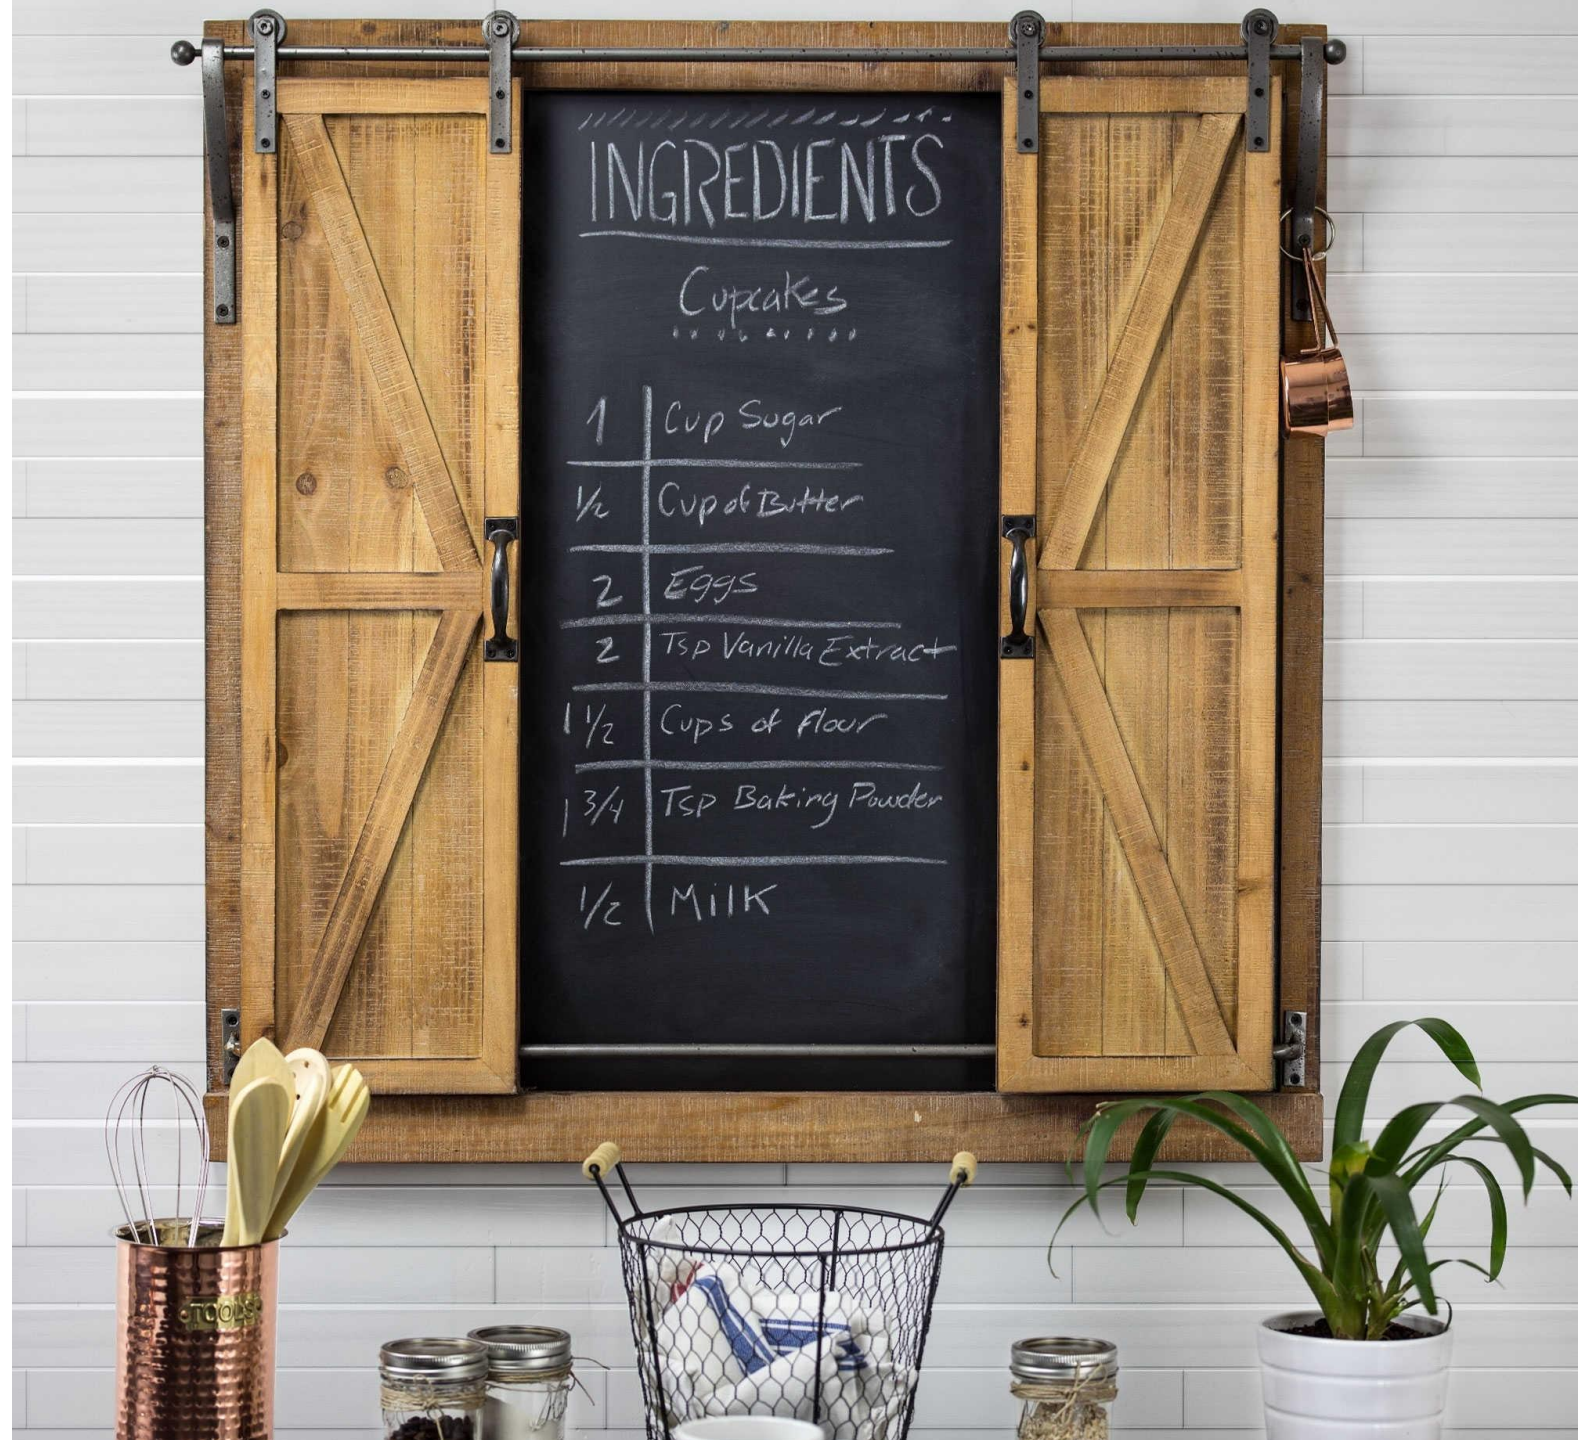 INGREDIENTS
Cupcakes
1 Cup Sugar
1/2 Cup of Butter
2 Eggs
2 Tsp Vanilla Extract
1 1/2 Cups of flour
1 3/4 Tsp Baking Powder
1/2 Milk
TOOLS